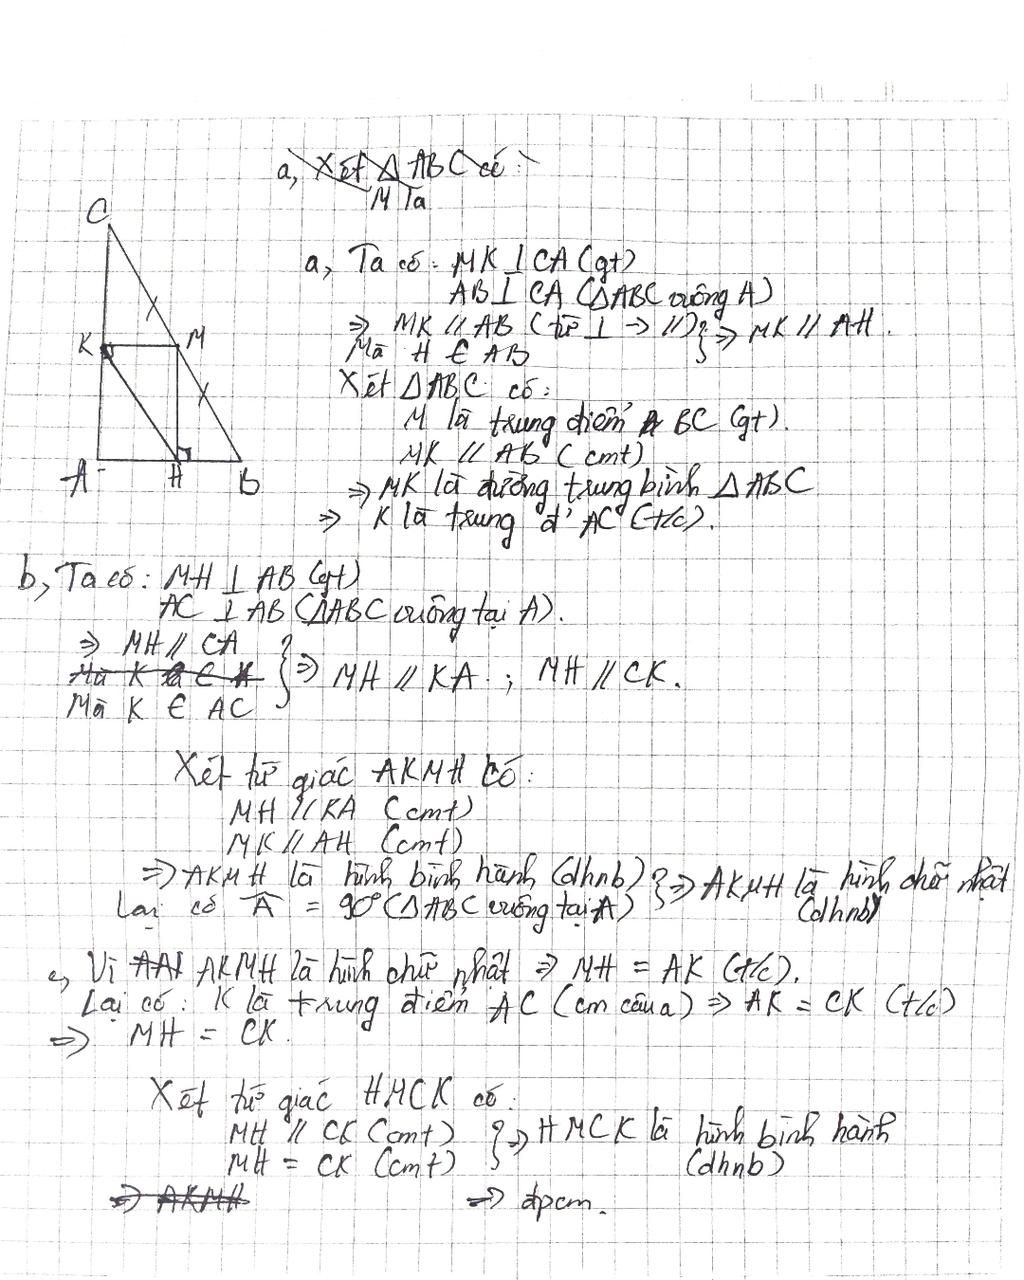 a, Xét Δ ABC có:
M Ta
C
K
M
A
H
B
a, Ta có: MK ⊥ CA (gt)
AB ⊥ CA (ΔABC vuông A)
⇒ MK // AB (từ ⊥ → //) } ⇒ MK // AH.
Mà H ∈ AB
Xét ΔABC có:
M là trung điểm BC (gt).
MK // AB (cmt)
⇒ MK là đường trung bình ΔABC
⇒ K là trung đ' AC (t/c).
b, Ta có: MH ⊥ AB (gt)
AC ⊥ AB (ΔABC vuông tại A).
⇒ MH // CA } ⇒ MH // KA ; MH // CK.
Mà K ∈
Mà K ∈ AC
Xét tứ giác AKMH có:
MH // KA (cmt)
MK // AH (cmt)
⇒ AKMH là hình bình hành (dhnb) } ⇒ AKMH là hình chữ nhật
Lại có Â = 90° (ΔABC vuông tại A) (dhnb)
c, Vì AKMH là hình chữ nhật ⇒ MH = AK (t/c).
Lại có: K là trung điểm AC (cm câu a) ⇒ AK = CK (t/c)
⇒ MH = CK.
Xét tứ giác HMCK có:
MH // CK (cmt) } ⇒ HMCK là hình bình hành
MH = CK (cmt) (dhnb)
⇒ AKMH ⇒ đpcm.